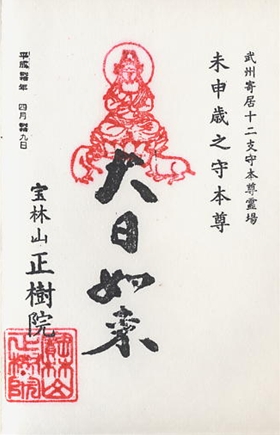 武州寄居十二支守本尊霊場
未申歳之守本尊
大日如来
宝林山 正樹院
平成 年 四月 九日